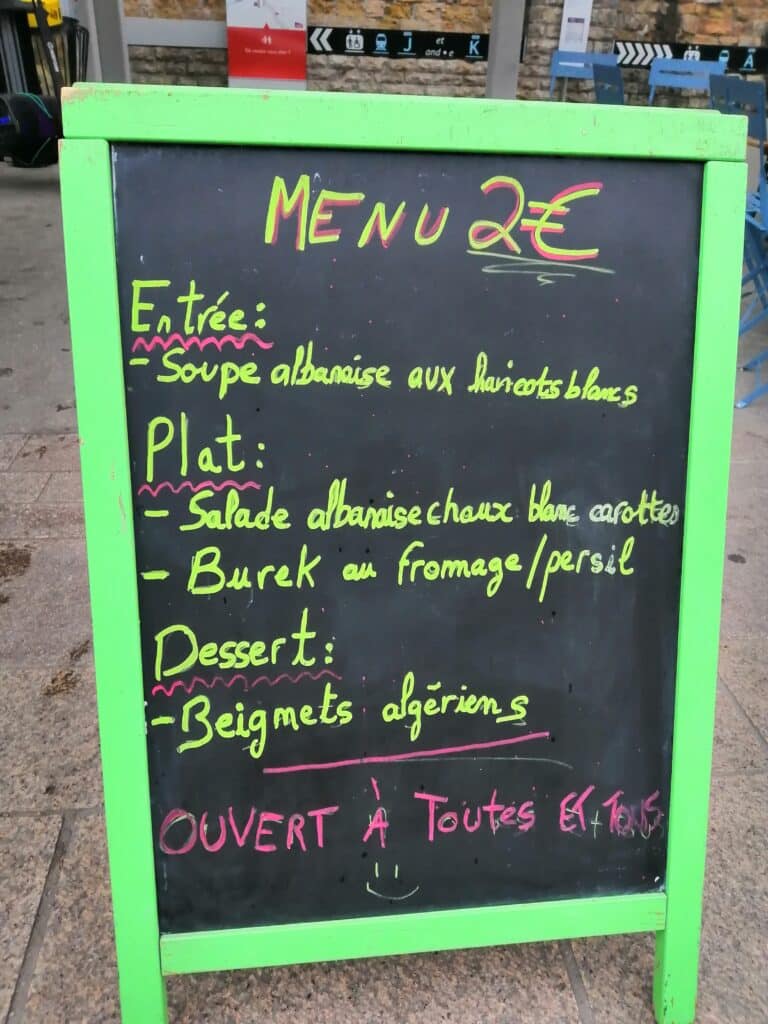 J
et
and • e
K
A
MENU 2€
Entrée:
- Soupe albanaise aux haricots blancs
Plat:
- Salade albanaise chaux blanc carottes
- Burek au fromage/persil
Dessert:
- Beigmets algériens
OUVERT À TOUTES ET TOUS